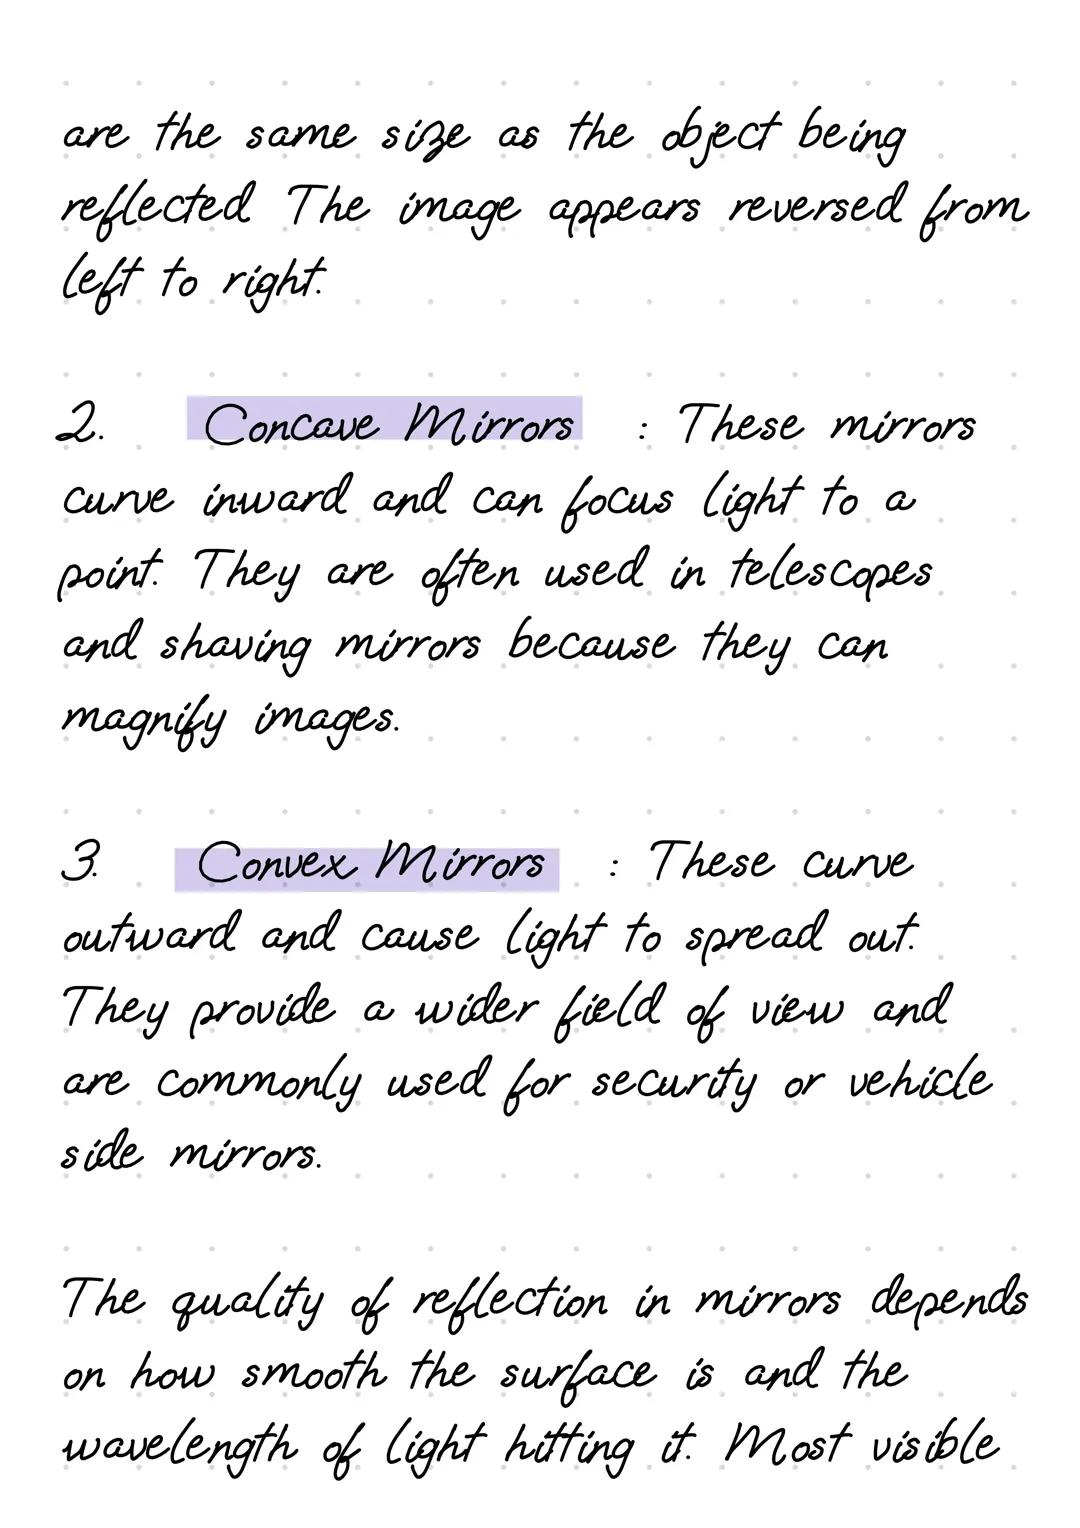 are the same size as the object being
reflected The image appears reversed from
left to right.
2. Concave Mirrors : These mirrors
curve inward and can focus light to a
point. They are often used in telescopes
and shaving mirrors because they can
magnify images.
3. Convex Mirrors : These curve
outward and cause light to spread out.
They provide a wider field of view and
are commonly used for security or vehicle
side mirrors.
The quality of reflection in mirrors depends
on how smooth the surface is and the
wavelength of light hitting it. Most visible